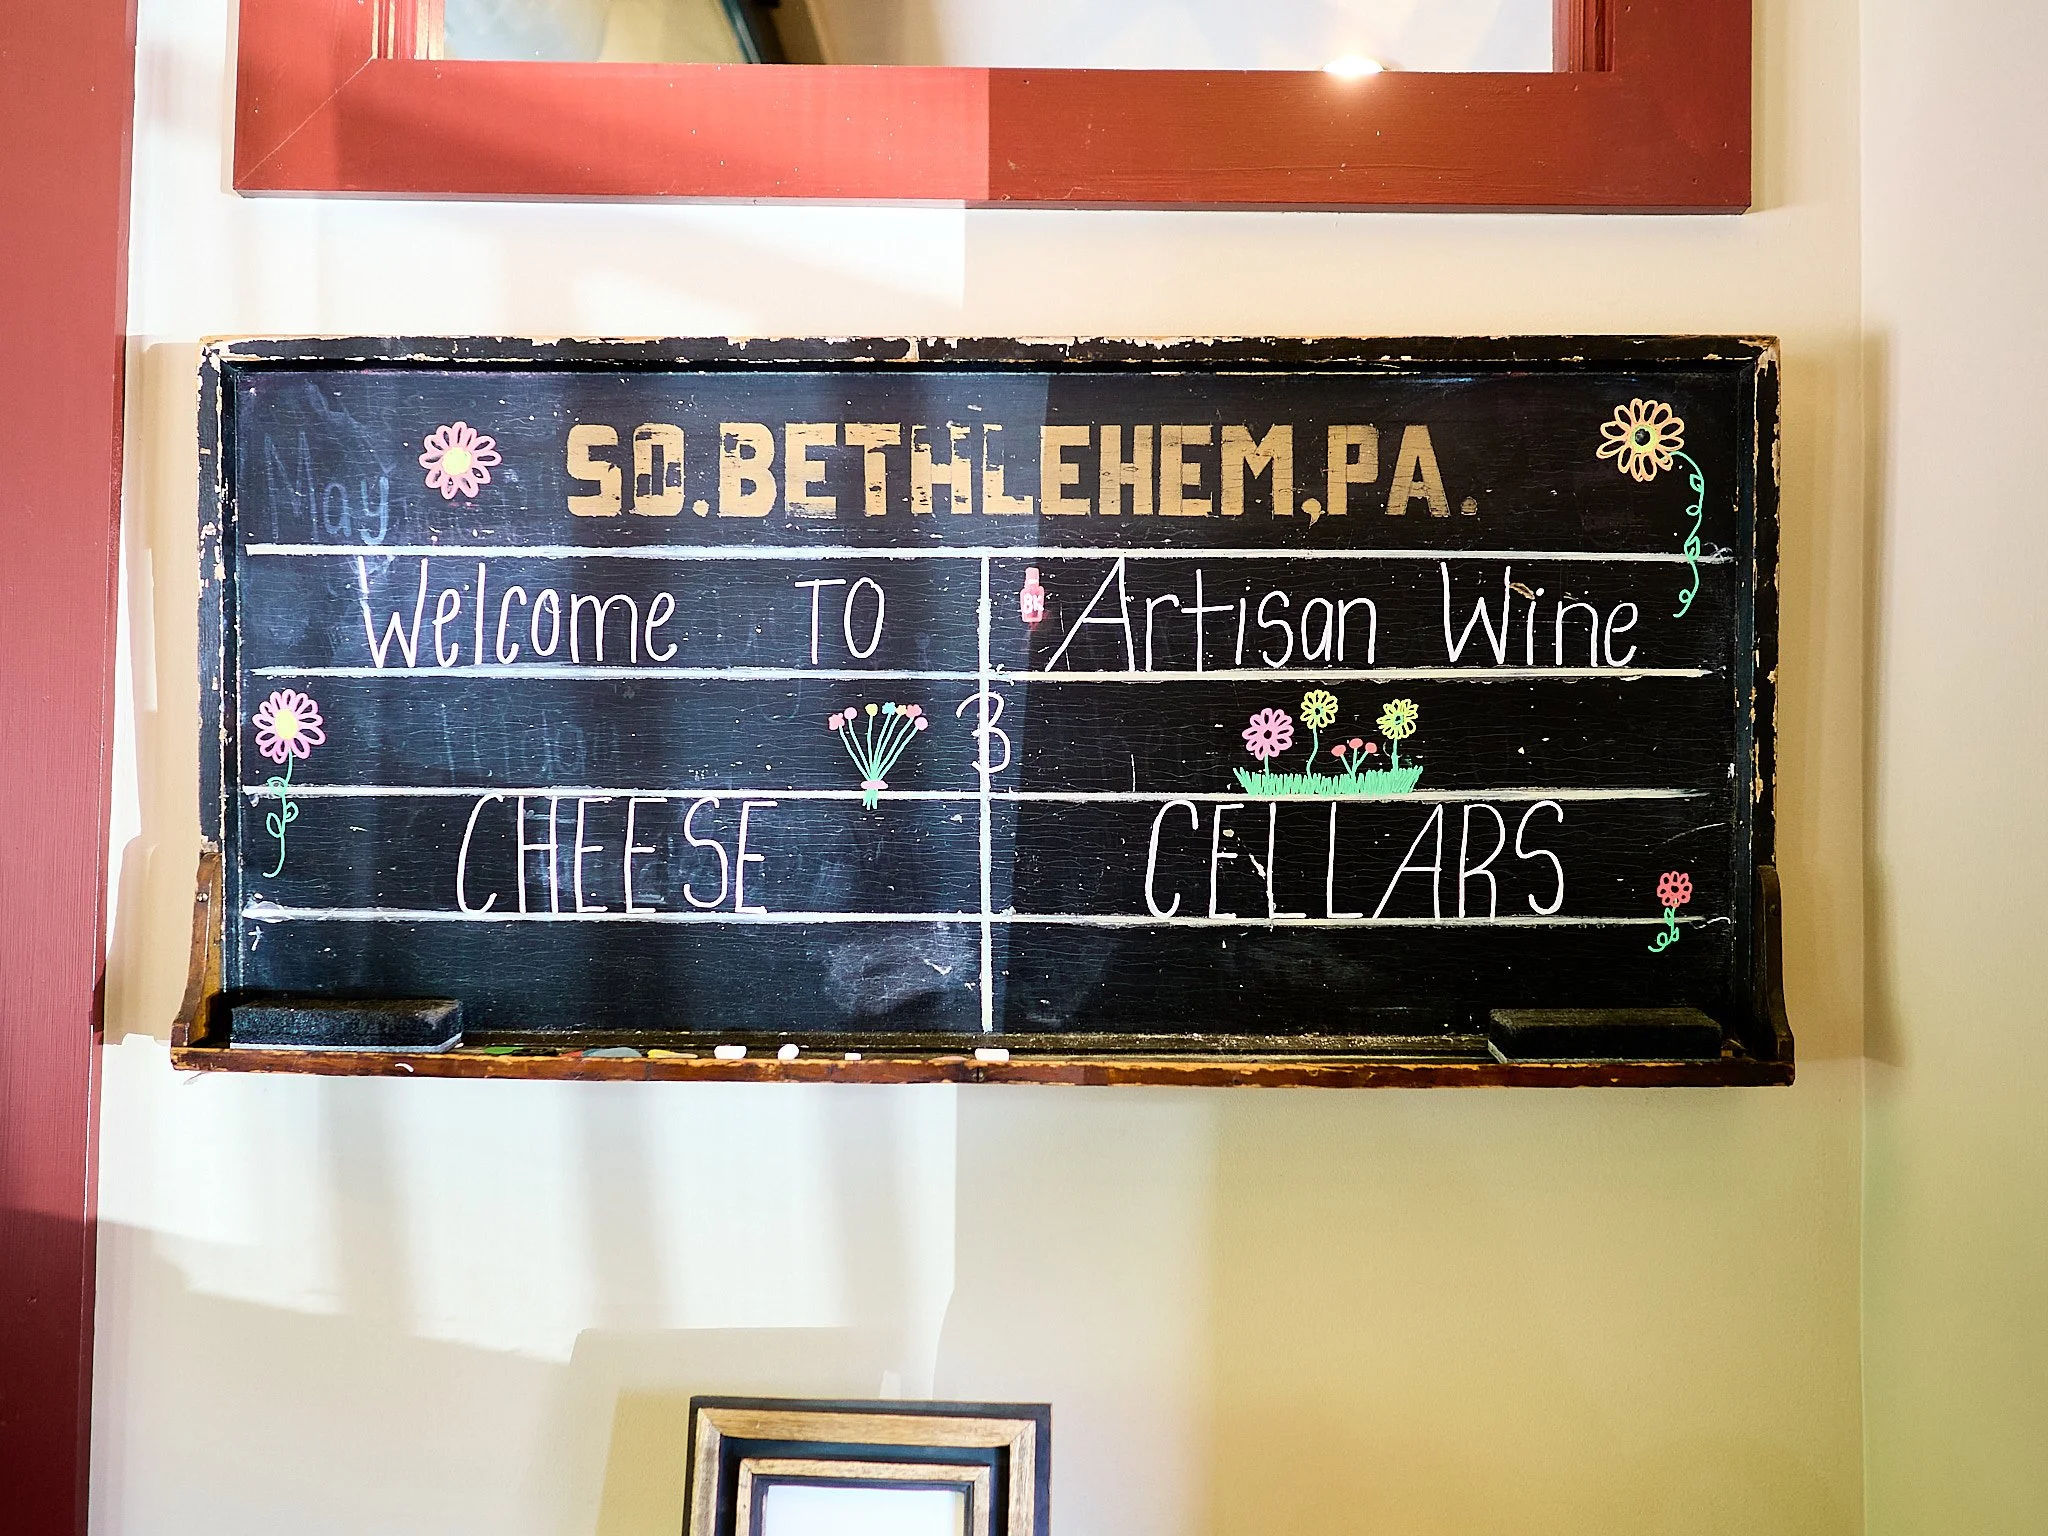 SO.BETHLEHEM,PA.
May
Welcome TO Artisan Wine
3
CHEESE CELLARS
BK